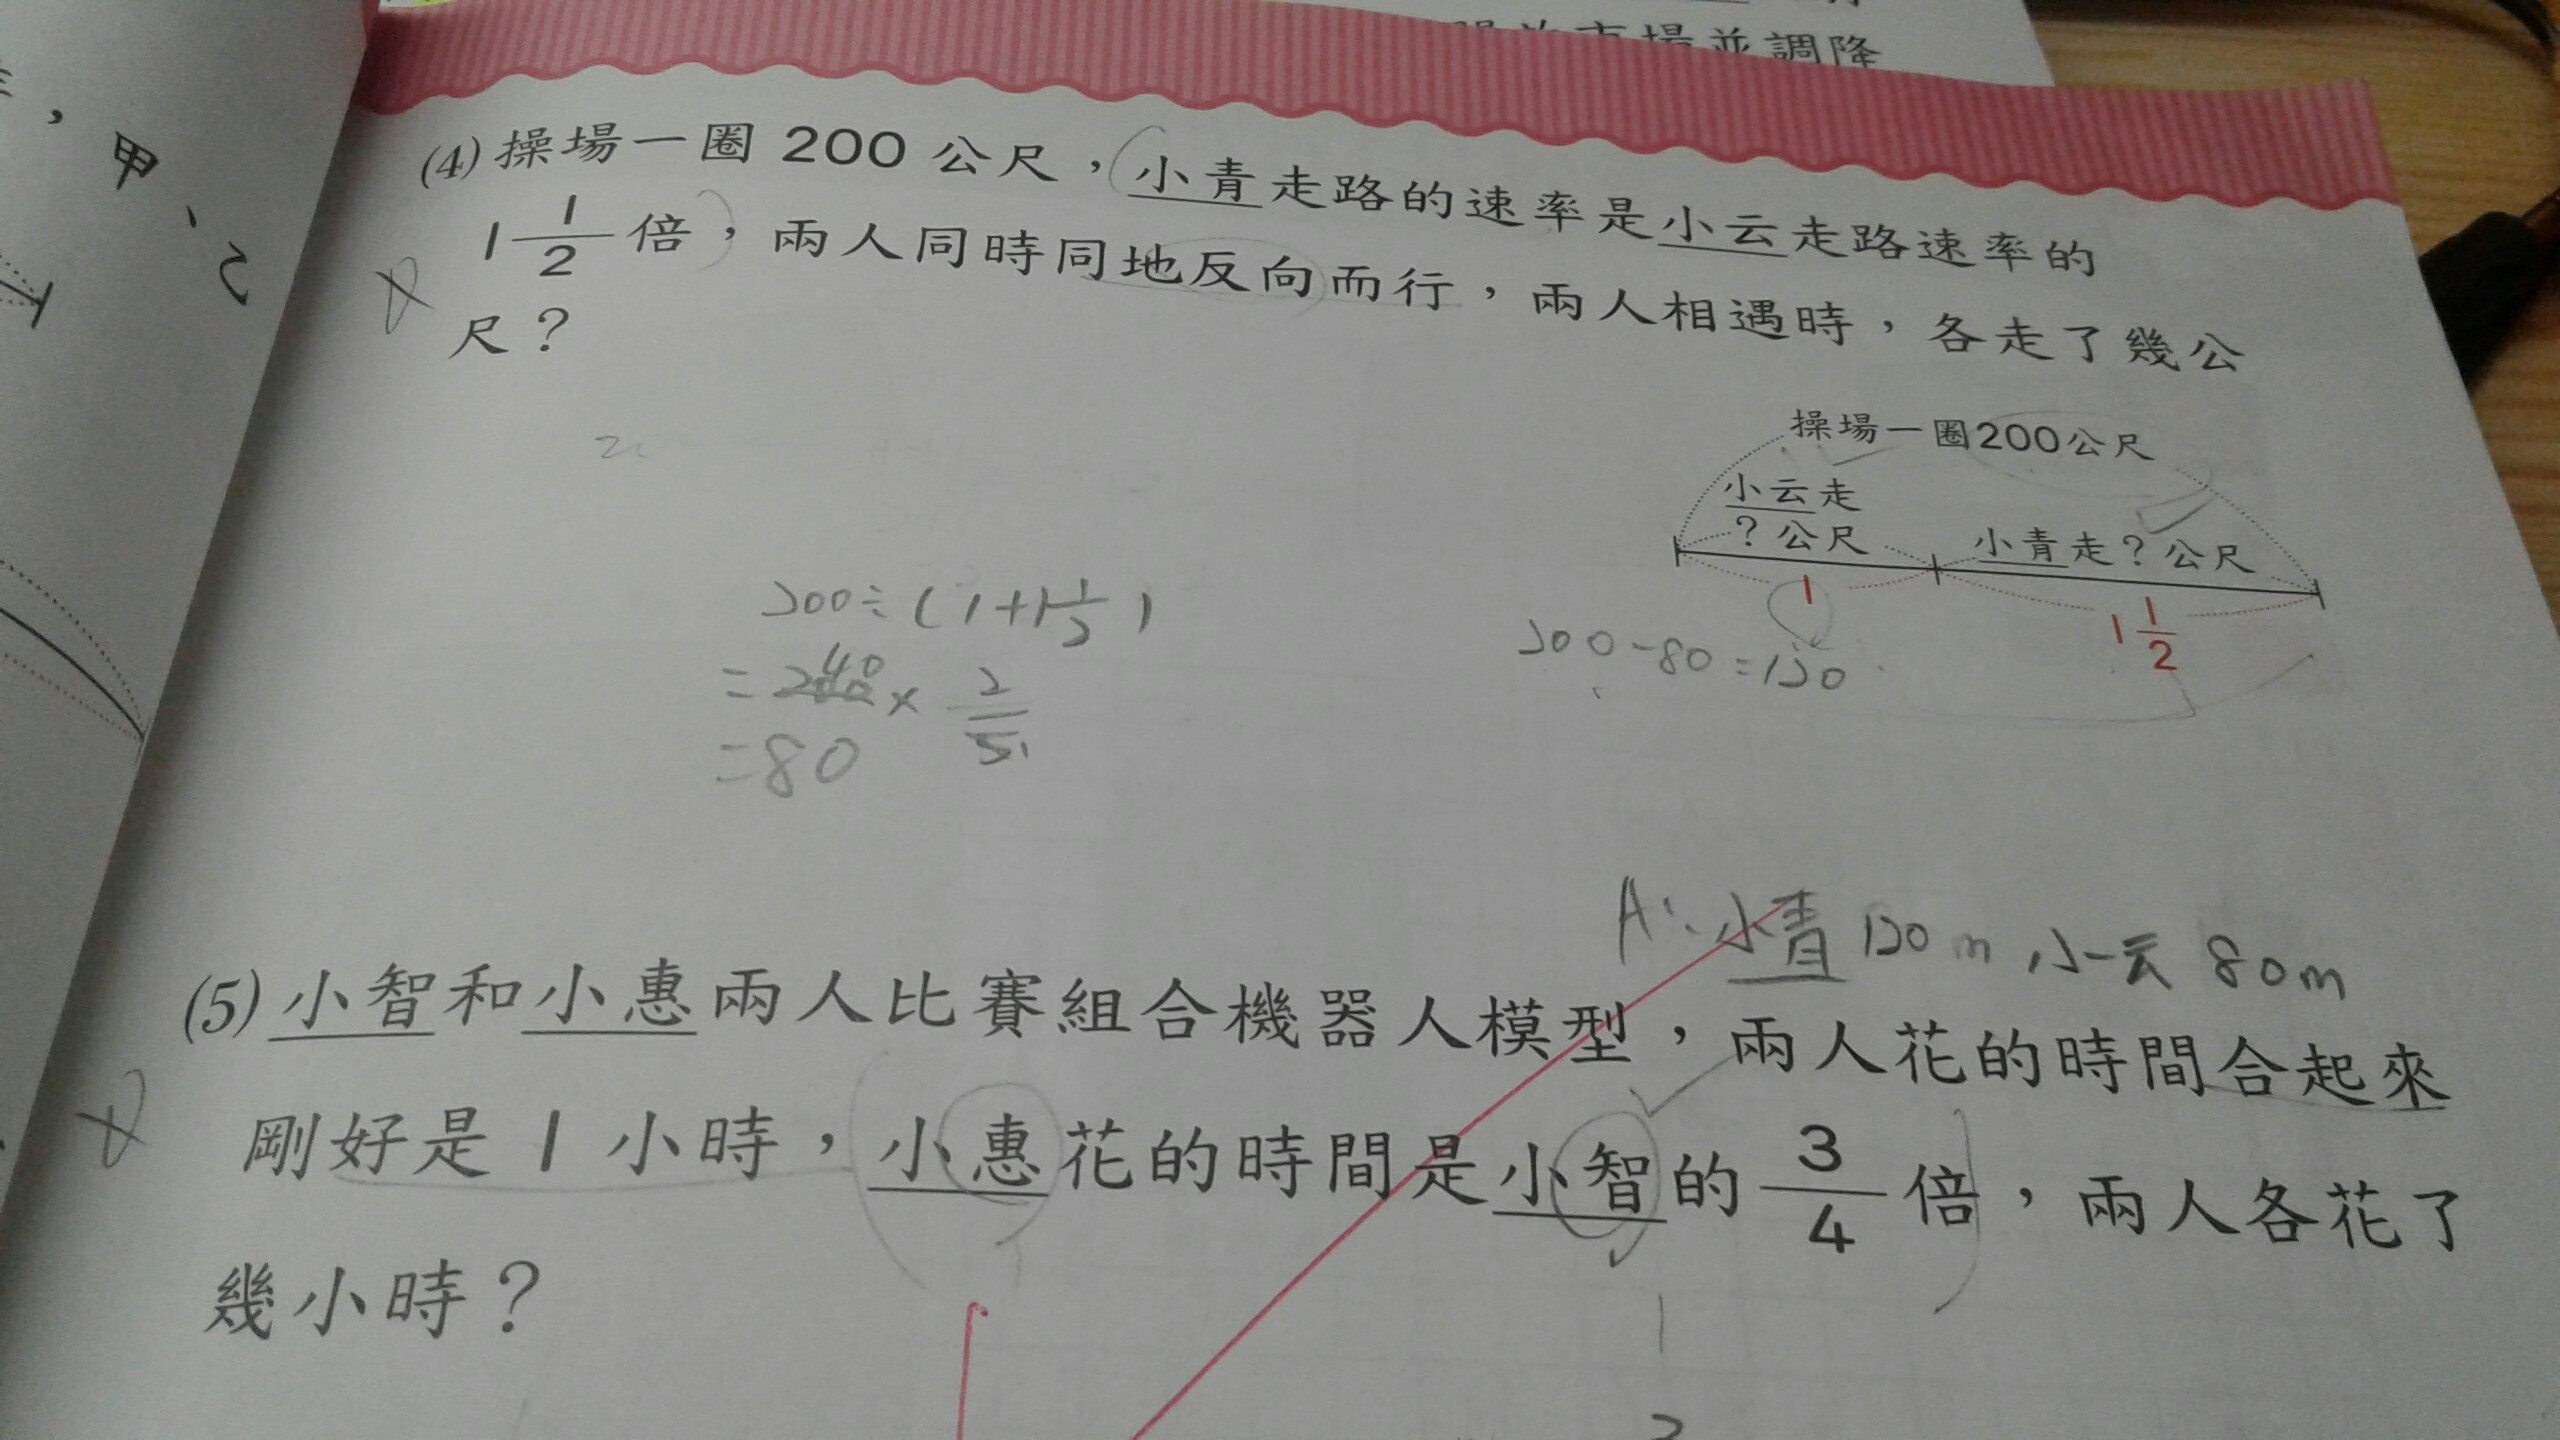 並調降
甲、乙
(4) 操場一圈 200 公尺，小青走路的速率是小云走路速率的
1 1/2 倍，兩人同時同地反向而行，兩人相遇時，各走了幾公
尺？
操場一圈200公尺
小云走
？公尺
小青走？公尺
1
1 1/2
200÷(1+1 1/2)
=200 40 × 2/5 1
=80
200-80=120
A: 小青 120m，小云 80m
(5) 小智和小惠兩人比賽組合機器人模型，兩人花的時間合起來
剛好是 1 小時，小惠花的時間是小智的 3/4 倍，兩人各花了
幾小時？
1